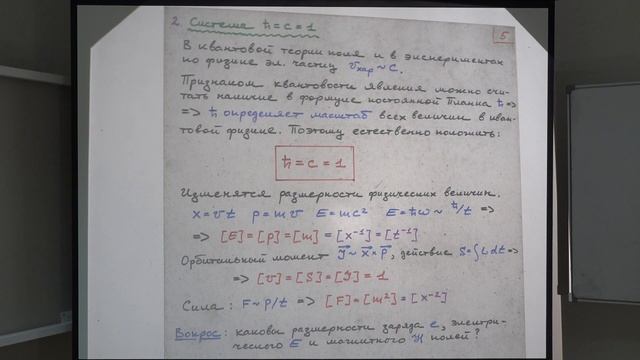 2. Система ħ = c = 1
5
В квантовой теории поля и в экспериментах
по физике эл. частиц v_хар ~ c.
Признаком квантовости явления можно счи-
тать наличие в формуле постоянной Планка ħ ⇒
⇒ ħ определяет масштаб всех величин в кван-
товой физике. Поэтому естественно положить:
ħ = c = 1
Изменятся размерности физических величин.
x = vt p = mv E = mc² E = ħω ~ ħ/t ⇒
⇒ [E] = [p] = [m] = [x⁻¹] = [t⁻¹]
Орбитальный момент J⃗ ~ x⃗ × p⃗, действие S = ∫ L dt ⇒
⇒ [v] = [S] = [J] = 1
Сила: F ~ p/t ⇒ [F] = [m²] = [x⁻²]
Вопрос: каковы размерности заряда e, электри-
ческого E и магнитного H полей?